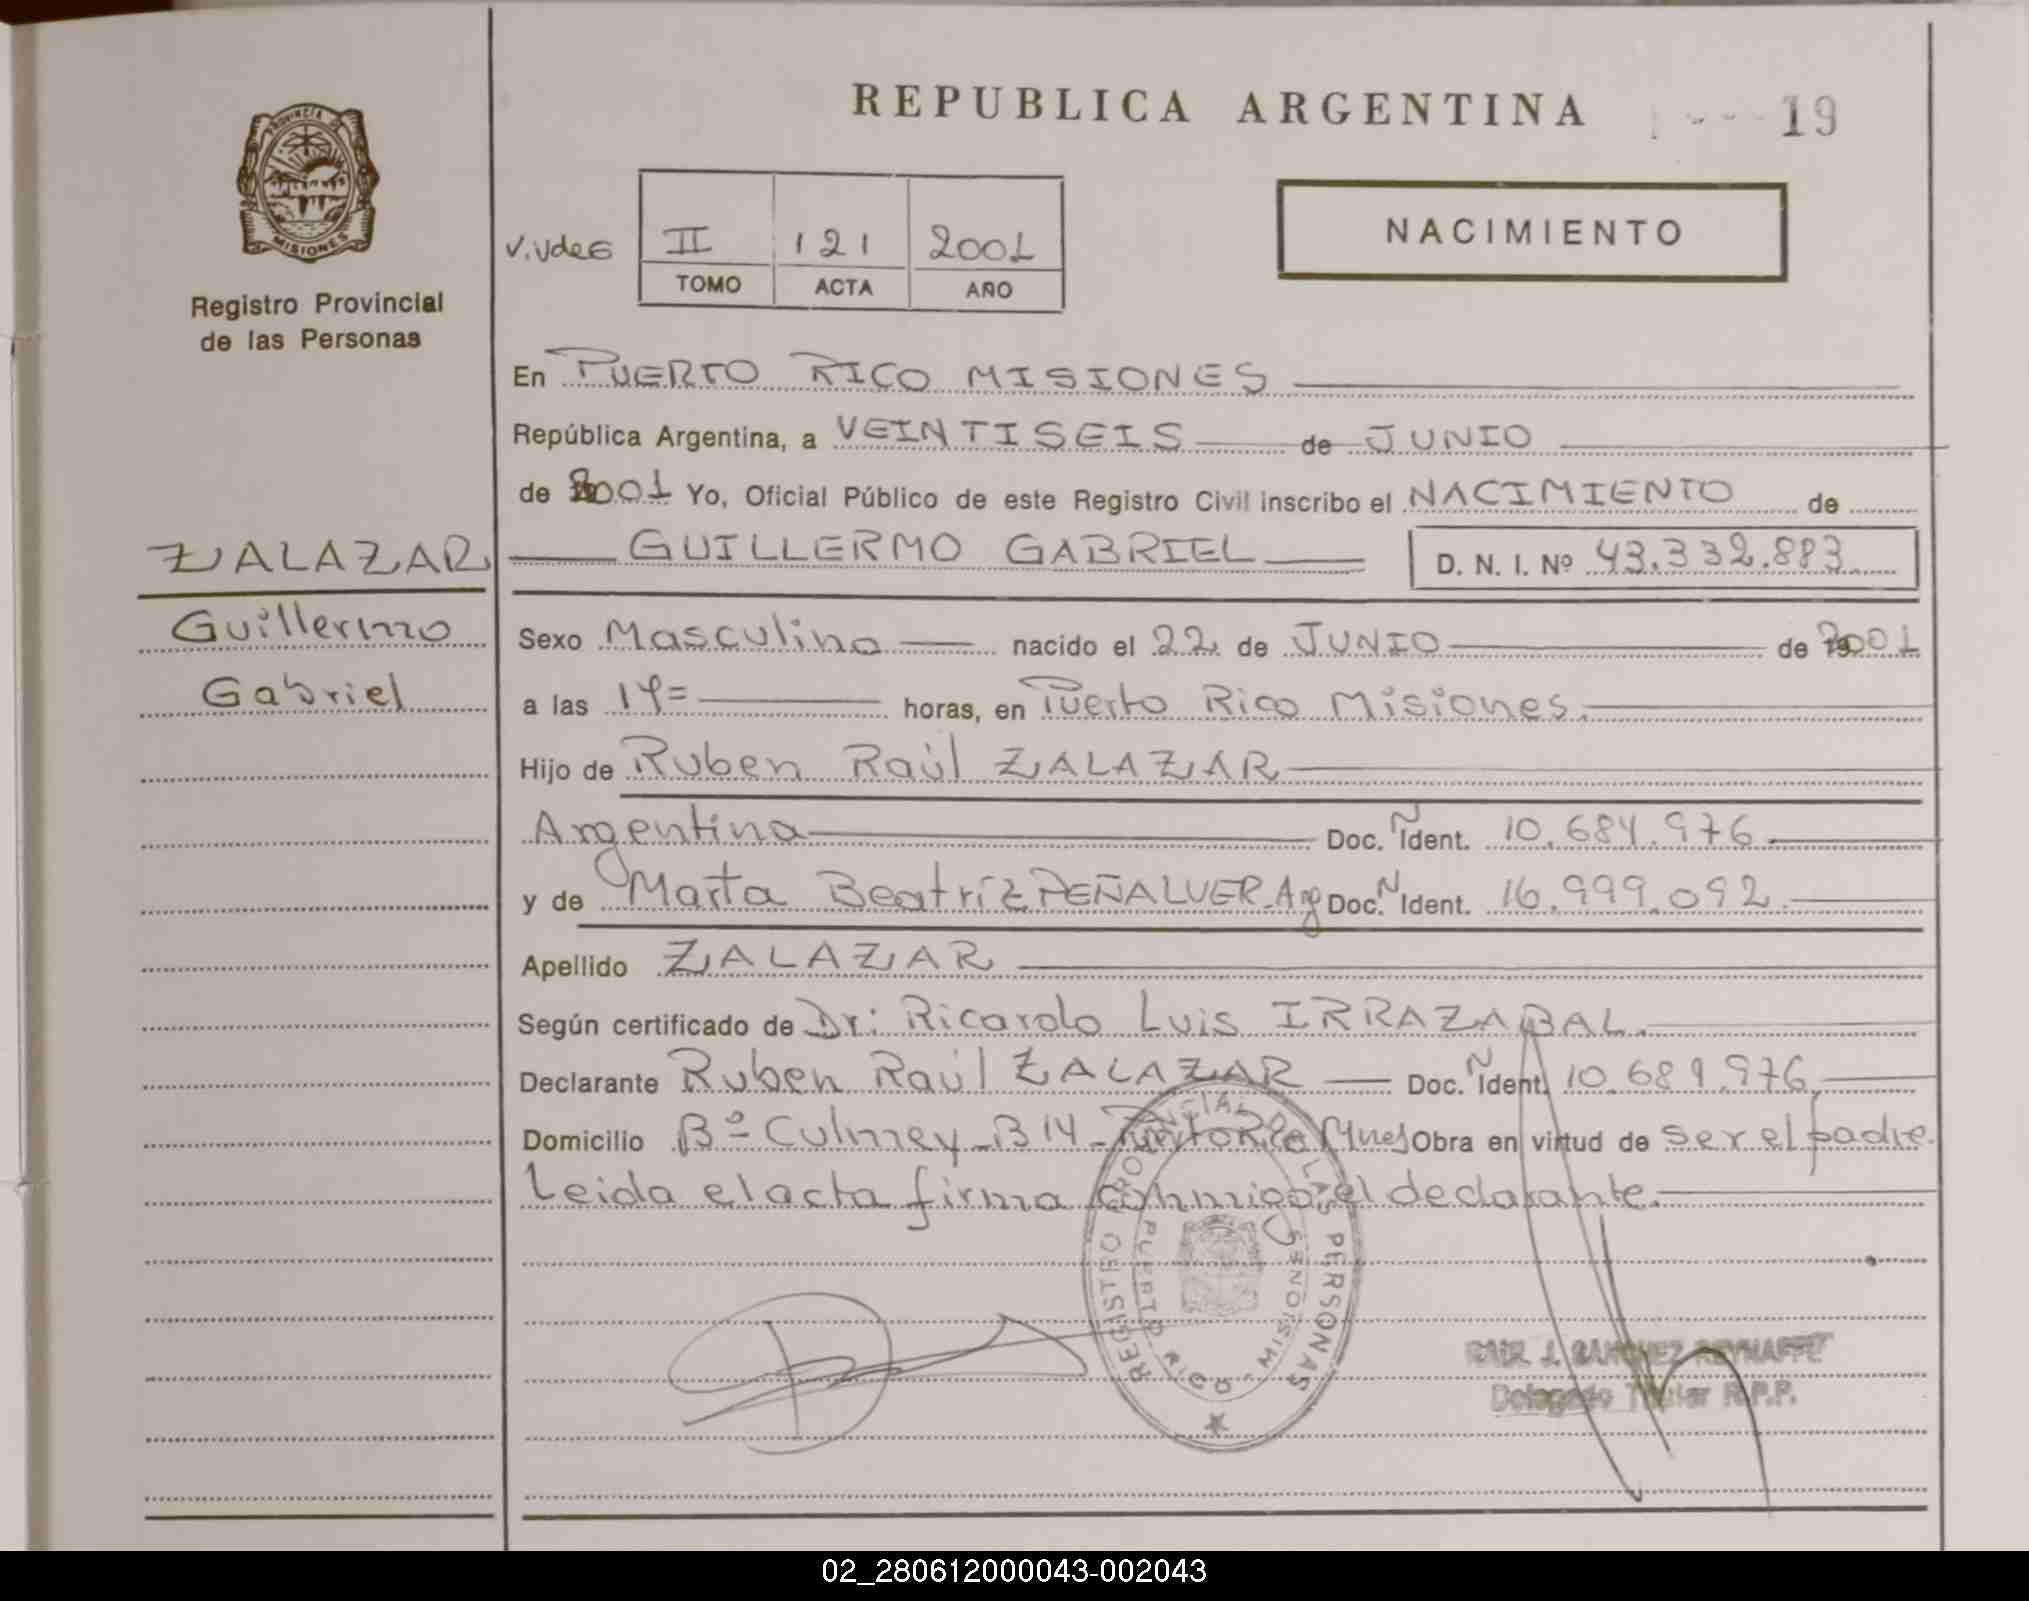 REPUBLICA ARGENTINA
19
PROVINCIA DE
MISIONES
Registro Provincial
de las Personas
II 121 2001
TOMO ACTA AÑO
NACIMIENTO
En PUERTO RICO MISIONES
República Argentina, a VEINTISEIS de JUNIO
de 2001 Yo, Oficial Público de este Registro Civil inscribo el NACIMIENTO de
ZALAZAR
GUILLERMO GABRIEL D. N. I. Nº 43.332.883
Guillermo
Gabriel
Sexo Masculino nacido el 22 de JUNIO de 2001
a las horas, en Puerto Rico Misiones.
Hijo de Ruben Raúl ZALAZAR
Argentina Doc. N Ident. 10.684.976
y de Marta Beatríz PEÑALVER Arg Doc. N Ident. 16.999.092
Apellido ZALAZAR
Según certificado de Dr: Ricardo Luis IRRAZABAL.
Declarante Ruben Raúl ZALAZAR Doc. N Ident. 10.684.976
Domicilio Bº Culmey - B 14 - Pürto Rico Mnes Obra en virtud de ser el padre.
Leida el acta firma conmigo el declarante.
REGISTRO PROVINCIAL DE LAS PERSONAS
PUERTO RICO - MISIONES
RAUL J. SANCHEZ REYNAFFE
Delegado Titular R.P.P.
02_280612000043-002043